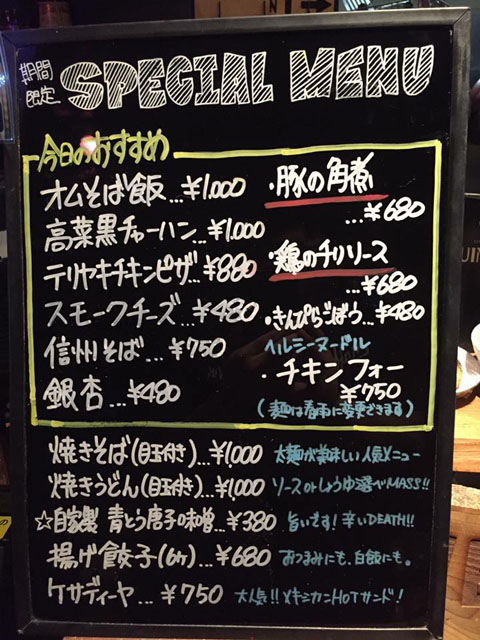 期間
限定
SPECIAL MENU
今日のおすすめ
オムそば飯...¥1,000
高菜黒チャーハン...¥1,000
テリヤキチキンピザ...¥880
スモークチーズ...¥480
信州そば...¥750
銀杏...¥480
・豚の角煮
...¥680
・鶏のチリソース
...¥680
・きんぴらごぼう...¥480
ヘルシーヌードル
・チキンフォー
¥750
(麺は春雨に変更できます)
焼きそば(目玉付き)...¥1,000 太麺が美味しい人気メニュー
焼きうどん(目玉付き)...¥1,000 ソースorしょうゆ選べMASS!!
☆自家製 青とう唐子味噌...¥380 旨いです!辛いDEATH!!
揚げ餃子(6ケ)...¥680 おつまみにも、白飯にも。
ケサディーヤ...¥750 大人気!!メキシカンHOTサンド!